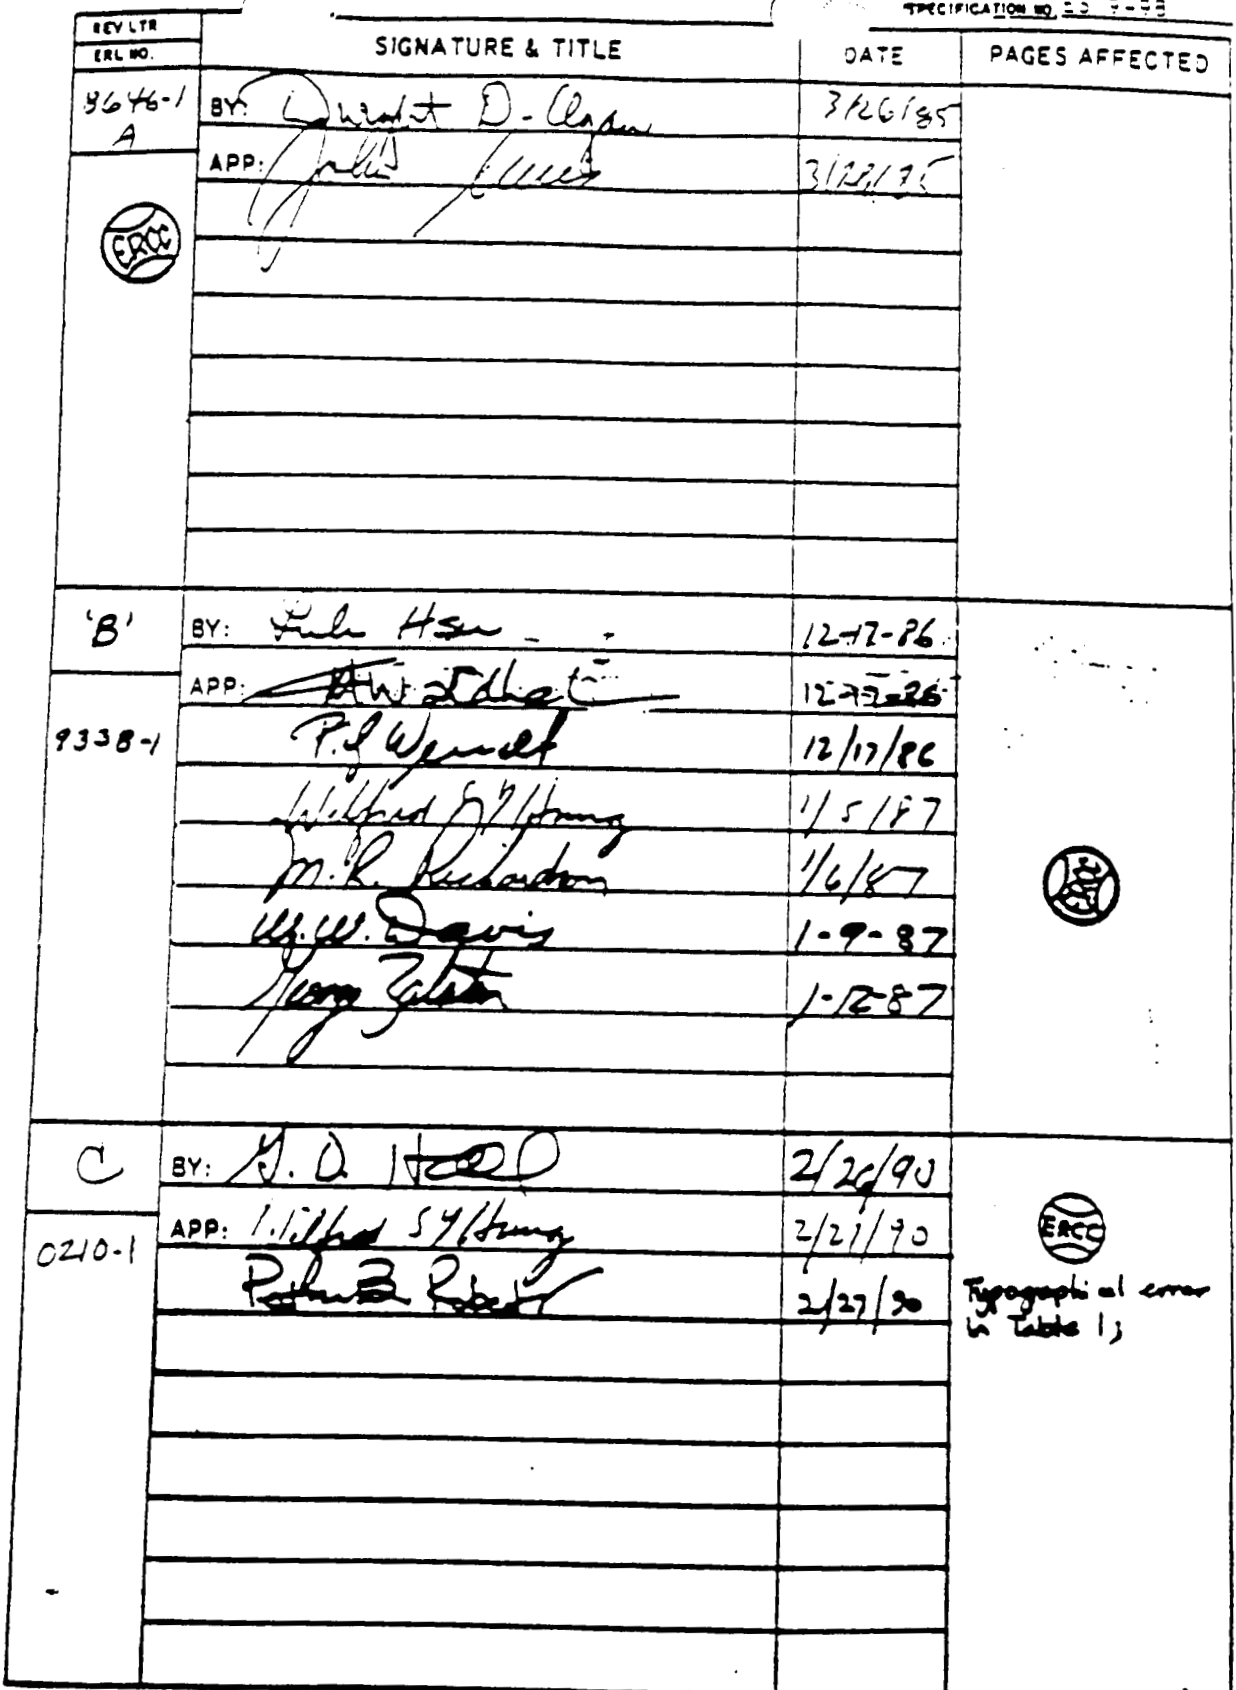 SPECIFICATION NO.
REV LTR
ERL NO.
SIGNATURE & TITLE
DATE
PAGES AFFECTED
8646-1
A
BY: Dwight D.
3/26/85
APP: John
ERCC
'B'
BY: Hsu
12-17-86
APP:
9338-1
P. J.
12/17/86
Wilfred SY Hung
1/5/87
M. R. Richardson
1/6/87
W. W. Davis
1-9-87
George
1-12-87
ERCC
C
BY: G. D. Hall
2/26/90
APP: Wilfred SY Hung
2/27/90
0210-1
2/27/90
ERCC
Typographical error
in Table 1;